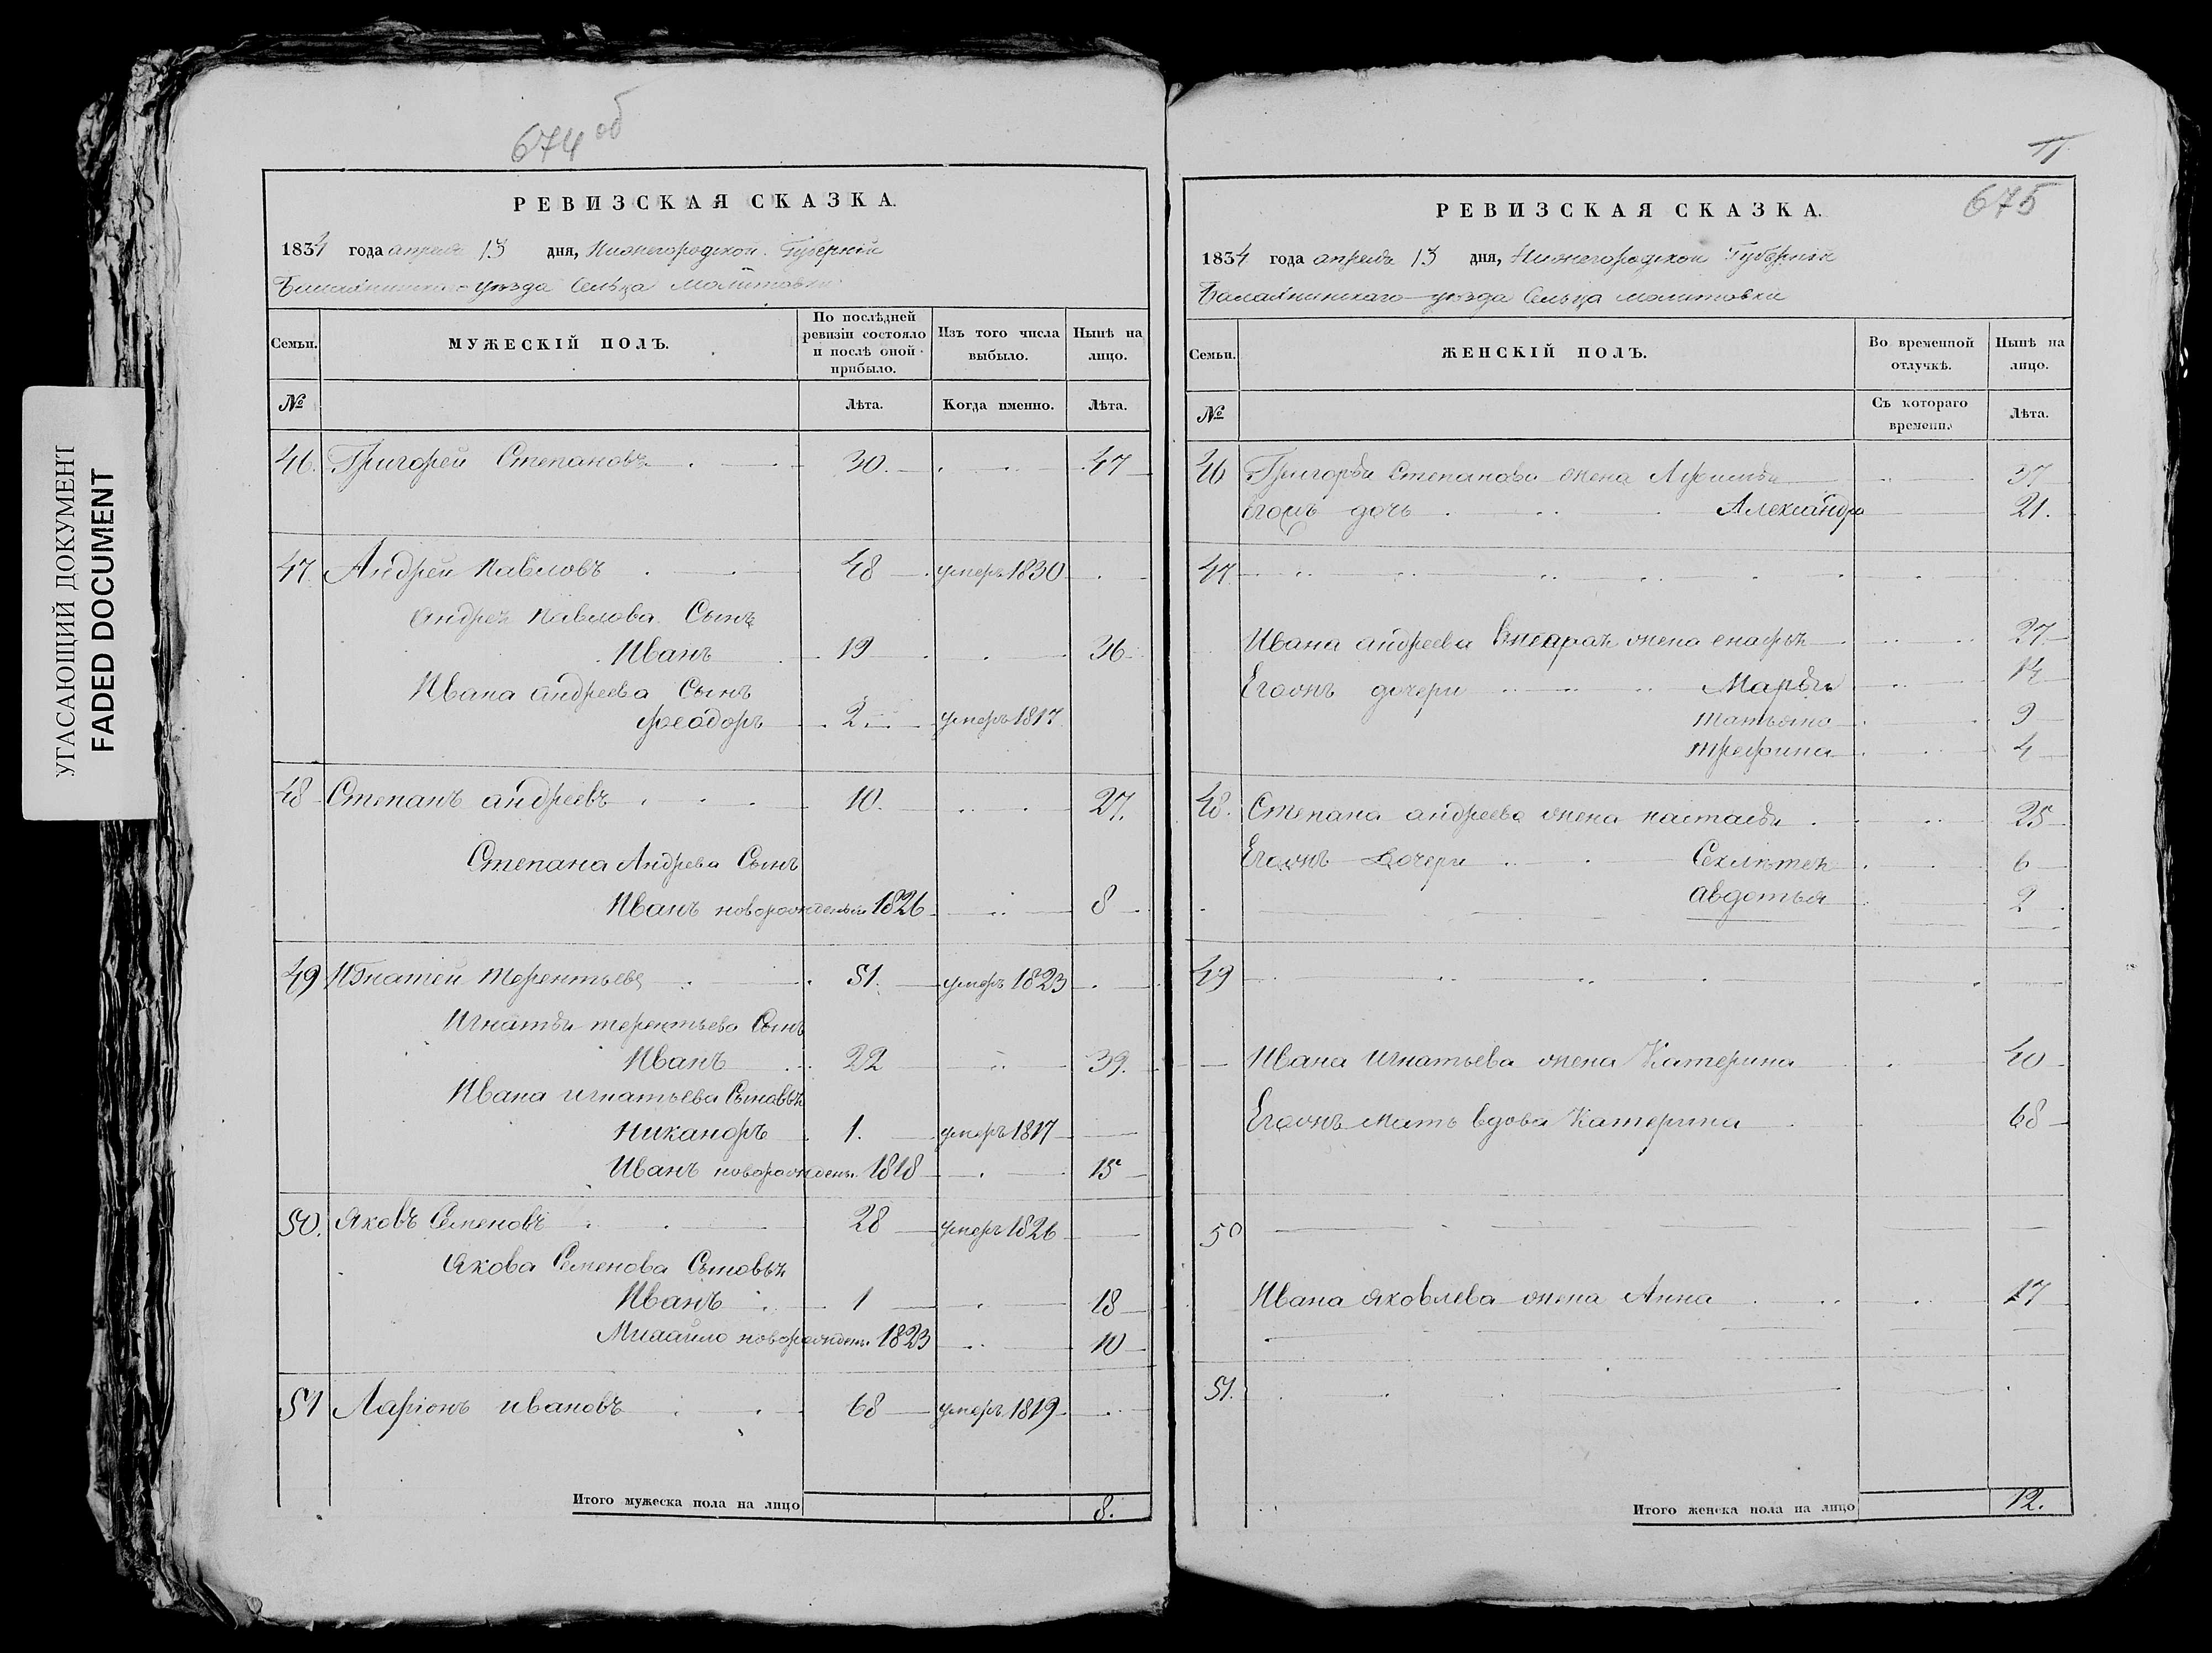 УГАСАЮЩИЙ ДОКУМЕНТ
FADED DOCUMENT
674 об
РЕВИЗСКАЯ СКАЗКА.
1834 года апреля 13 дня, Нижегородской Губернии
Балахнинскаго уезда Сельца Молитовки
Семьи. МУЖЕСКІЙ ПОЛЪ. По послѣдней ревизіи состояло и послѣ оной прибыло. Изъ того числа выбыло. Нынѣ на лицо.
№ Лѣта. Когда именно. Лѣта.
46. Григорей Степановъ 30. 47
47. Андрей Павловъ 48 умеръ 1830
Андрея Павлова Сынъ
Иванъ 19 36
Ивана андреева Сынъ
Феодоръ 2 умеръ 1817
48 Степанъ андреевъ 10. 27.
Степана Андреева Сынъ
Иванъ новорожденый 1826 8
49 Игнатей Терентьевъ 51. умеръ 1823
Игнатья терентьева Сынъ
Иванъ 22 39.
Ивана игнатьева Сыновья
Никаноръ 1. умеръ 1817
Иванъ новорожден. 1818 15
50. Яковъ Семеновъ 28 умеръ 1826
Якова Семенова Сыновья
Иванъ 1 18
Михайло новорожден. 1823 10
51 Ларіонъ ивановъ 68 умеръ 1819
Итого мужеска пола на лицо 8.
11
675
РЕВИЗСКАЯ СКАЗКА.
1834 года апреля 13 дня, Нижегородской Губерніи
Балахнинскаго уезда Сельца молитовки
Семьи. ЖЕНСКІЙ ПОЛЪ. Во временной отлучкѣ. Нынѣ на лицо.
№ Съ котораго времени. Лѣта.
46 Григорья Степанова жена 37
Егожъ дочь Александра 21.
47
Ивана андреева жена 27
Егожъ дочери Марья 14
Татьяна 9
4
48. Степана андреева жена настасья 25
Егожъ Дочери 6
Авдотья 2
49
Ивана игнатьева жена Катерина 40
Егожъ мать вдова Катерина 68
50
Ивана яковлева жена Анна 17
51.
Итого женска пола на лицо 12.